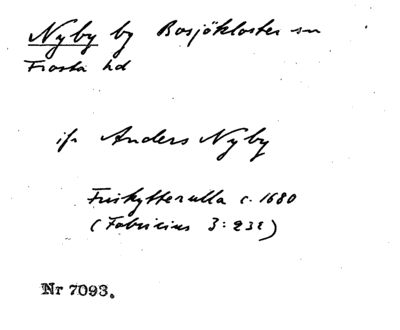 Nyby by Bosjökloster sn
Frosta hd
jfr Anders Nyby
Friskytterulla c. 1680
(Fabricius 3:232)
Nr 7093.